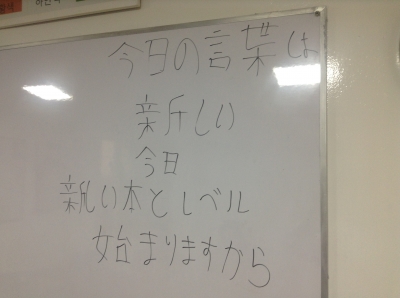 今日の言葉は
新しい
今日
新しい本とレベル
始まりますから